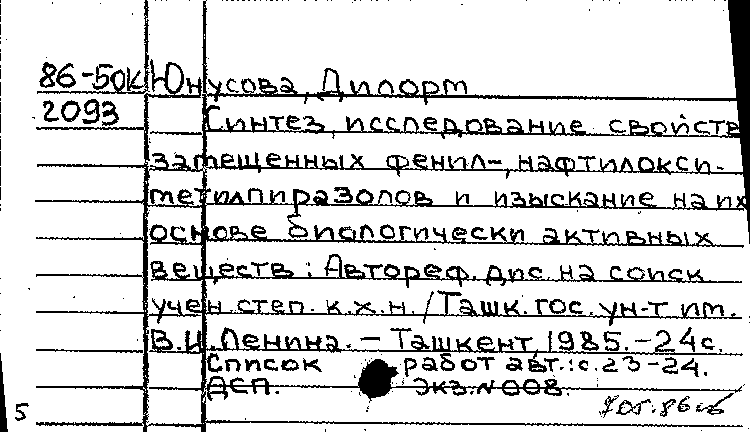 86-50К Юнусова, Дилорт
2093 Синтез, исследование свойств
замещенных фенил-, нафтилокси-
метилпиразолов и изыскание на их
основе биологически активных
веществ: Автореф. дис. на соиск
учен. степ. к.х.н. / Ташк. гос. ун-т им.
В.И. Ленина. - Ташкент, 1985. - 24 с.
Список работ авт.: с. 23-24.
ДСП. Экз. N 008.
5